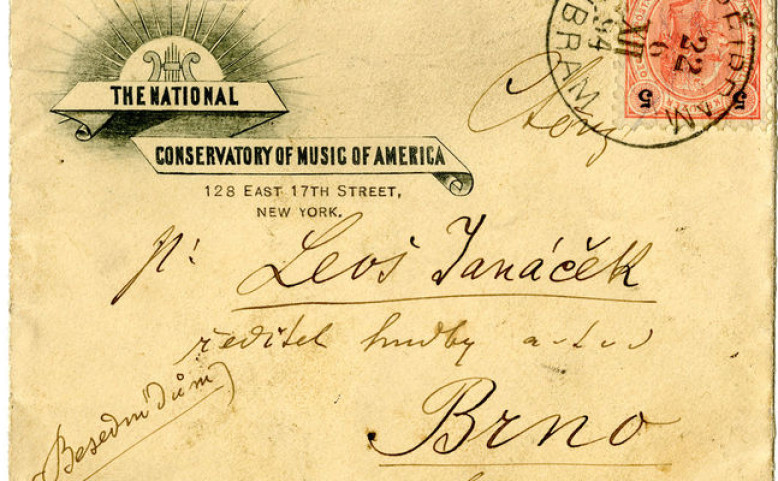 THE NATIONAL
CONSERVATORY OF MUSIC OF AMERICA
128 EAST 17TH STREET,
NEW YORK.
5 5
22
6
XII
BRAM
Slovu
p: Leoš Janáček
ředitel hudby a-t-d
(Besední dům)
Brno